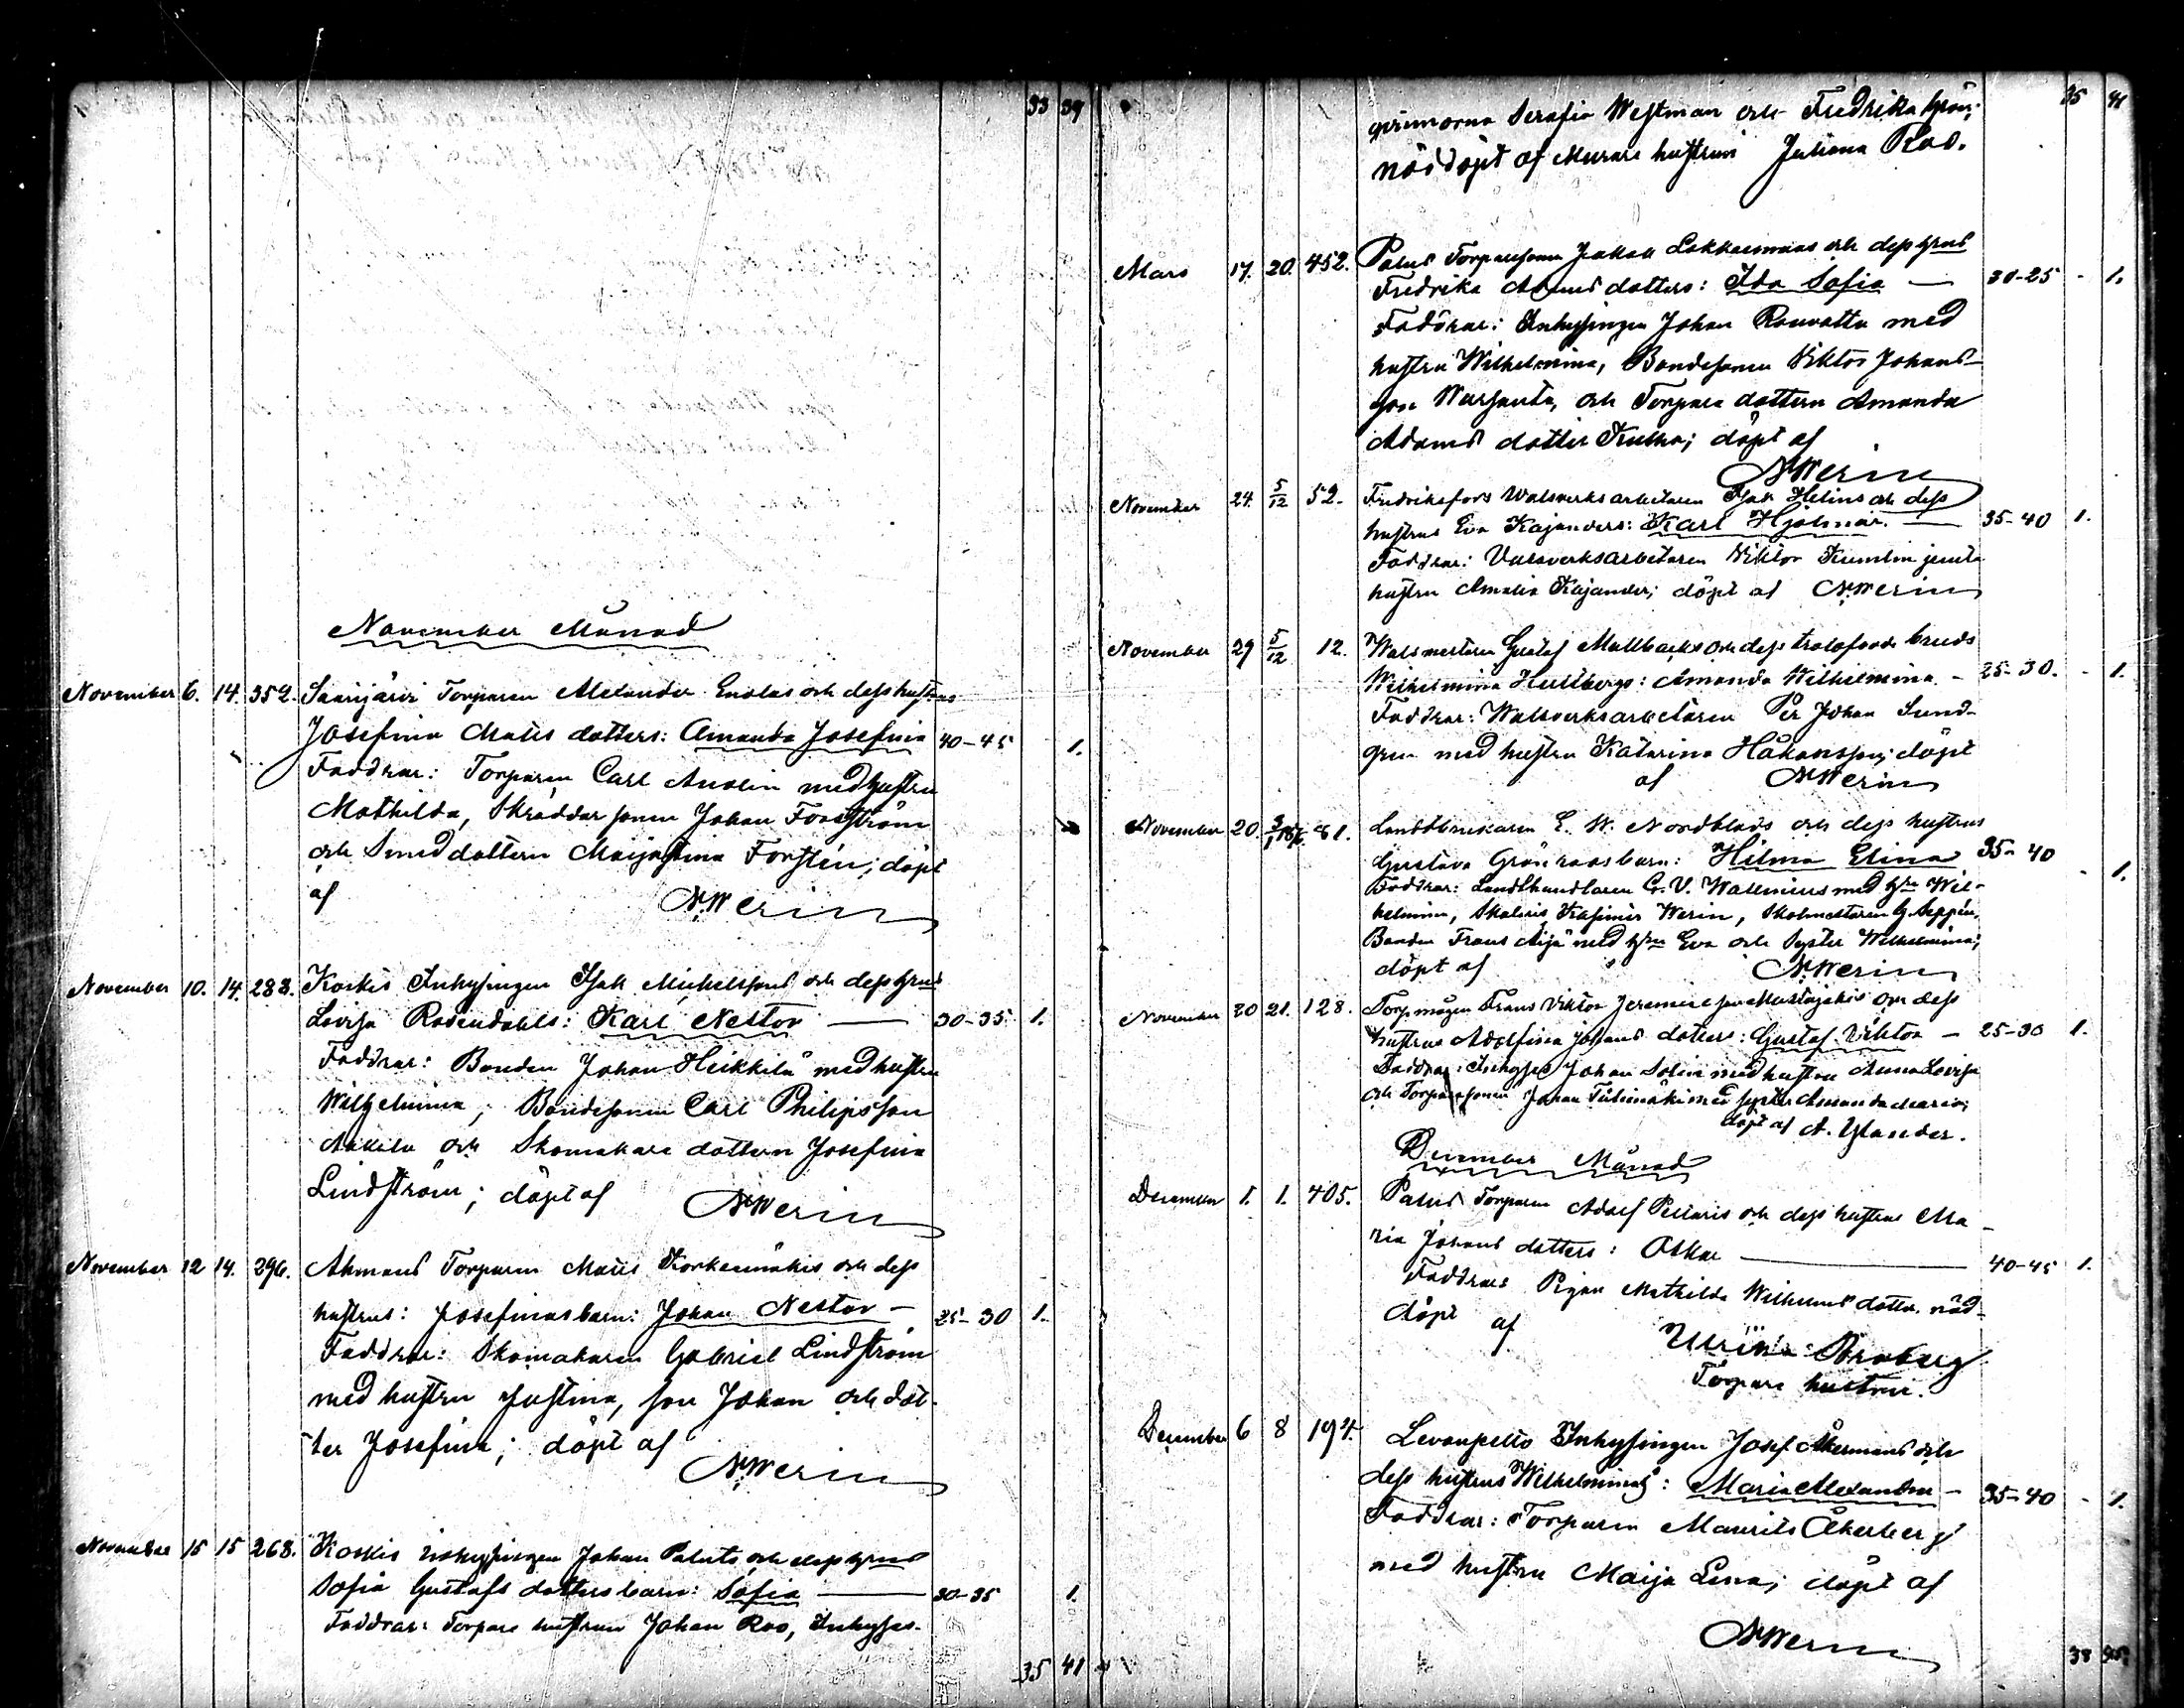 33 39
November Månad
November 6. 14. 352. Saarijärvi Torparen Alexander Enolas och dess hustrus
Josefina Matts dotters: Amanda Josefina 40-45 1.
Faddrar: Torparen Carl Anolin med hustru
Mathilda, Skräddar sonen Johan Forsström
och Smeddottern Maijastina Forstén; döpt
af NWerin
November 10. 14. 288. Koskis Inhysingen Isak Michelssons och dess hrus
Lovisa Rosendahls: Karl Nestor 30-35. 1.
Faddrar: Bonden Johan Heikkilä med hustru
Wilhelmina, Bondesonen Carl Philipsson
och Skomakare dottern Josefina
Lindström; döpt af NWerin
November 12 14. 296. Ahmans Torparen Matts Korkeamäkis och dess
hustrus: Josefinas barn: Johan Nestor - 25-30 1.
Faddrar: Skomakaren Gabriel Lindström
med hustru Justina, son Johan och dot-
ter Josefina; döpt af NWerin
November 15 15 268. Koskis inhysingen Johan och dess hrus
Sofia Gustafs dotters barn: Sofia 30-35 1.
Faddrar: Torpare hustrun Johan Roo, Inhyses-
35 41
35 41
Serafia Westman och Fredrika
nöddöpt af Murare hustrun Juliana Roo.
Mars 17. 20. 452. Palus Torparesonen Jakob och dess hrus
Fredrika dotters: Ida Sofia 30-25 - 1.
Faddrar: Inhysingen Johan Rouvattu med
hustru Wilhelmina, Bondesonen Viktor Johans-
son och Torpare dottern Amanda
Adams dotter döpt af
NWerin
November 24. 5/12 52. Fredriksfors Valsverksarbetaren Isak Helins och dess
hustrus Eva Kajanders: Karl Hjalmar. 35-40 1.
Faddrar: Valsverksarbetaren Viktor Kumlin jemte
hustru Amalia Kajander; döpt af NWerin
November 29 5/12 12. Walsmestaren Gustaf Mallbacks och dess trolofvade bruds
Wilhelmina Hullbergs: Amanda Wilhelmina - 25-30. - 1.
Faddrar: Walsverksarbetaren Per Johan Sund-
gren med hustru Katarina Håkansson; döpt
af NWerin
November 20. 81. Landtbrukaren E. W. Nordblads och dess hustrus
Gustava Grönroos barn: Hilma Elina 35-40 - 1.
Faddrar: Landthandlaren G. V. Wallenius med hru Wil-
helmina, Skoleris Kasimir Werin, Skolmestaren G. Seppén,
Bonden Frans Äijä med hru Eva och Syster Wilhelmina;
döpt af NWerin
November 20 21. 128. Torpmågen Frans Viktor Jeremiesson och dess
hustrus Adolfina Johans dotters: Gustaf Viktor - 25-30 1.
Faddrar: Inhyses Johan Solin med hustru Anna Lovisa
och Torparesonen Johan med syster Amanda Maria;
döpt af A. Ylander.
December Månad
December 1. 1. 405. Palus Torparen Adolf och dess hustrus Ma-
ria Johans dotters: Oskar 40-45 1.
Faddrar: Pigan Mathilda Wilhelms dotter. nöd-
döpt af Ulrika Broberg
Torpare hustru.
December 6 8 194. Levanpelto Inhysingen Josef Åkermans och
dess hustrus Wilhelminas: Maria Alexandra - 35-40 - 1.
Faddrar: Torparen Maurits Åkerberg
med hustru Maija Lena; döpt af
NWerin
38 45